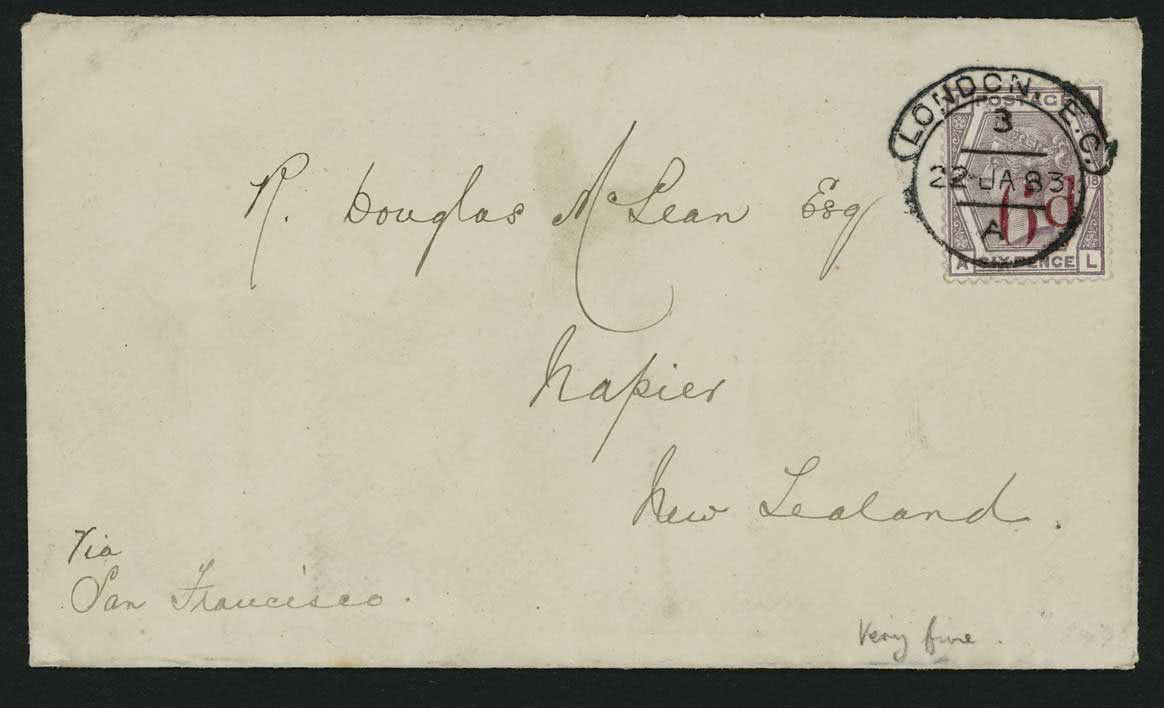 LONDON. E.C.
3
22 JA 83
A
POSTAGE
18
6d
A SIX PENCE L
R. Douglas McLean Esq
Napier
New Zealand.
Via
San Francisco.
Very fine.